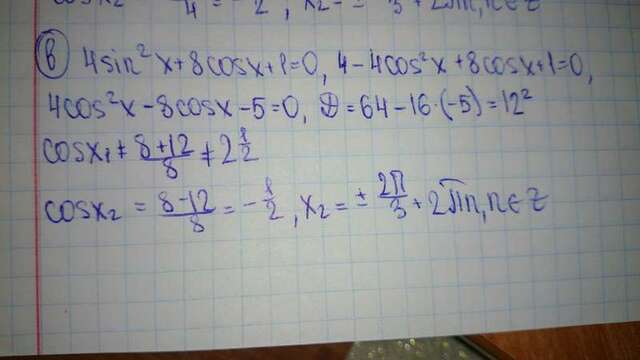 cosx₂ 4 = - 2, x₂ = ± 3 + 2πn, n∈Z
в) 4sin²x+8cosx+1=0, 4-4cos²x+8cosx+1=0,
4cos²x-8cosx-5=0, D=64-16·(-5)=12²
cosx₁ ≠ (8+12)/8 ≠ 2 1/2
cosx₂ = (8-12)/8 = -1/2, x₂ = ± 2π/3 + 2πn, n∈Z